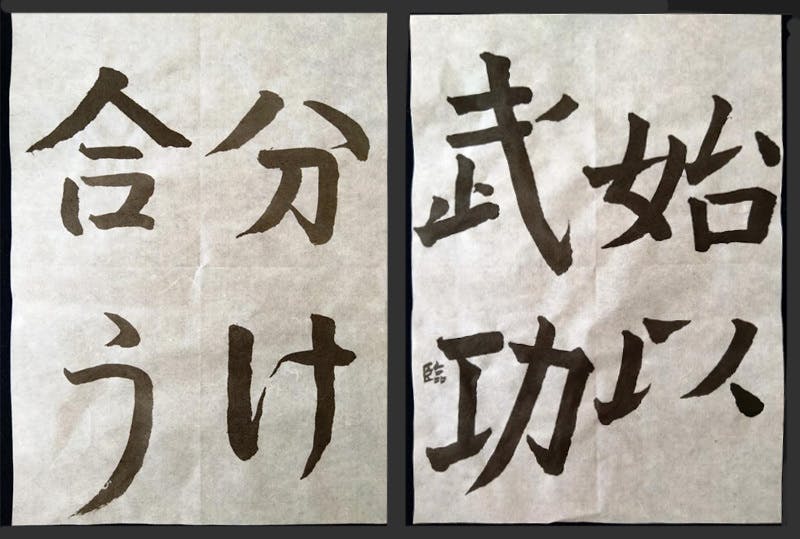 分け
合う
始以
武功
臨